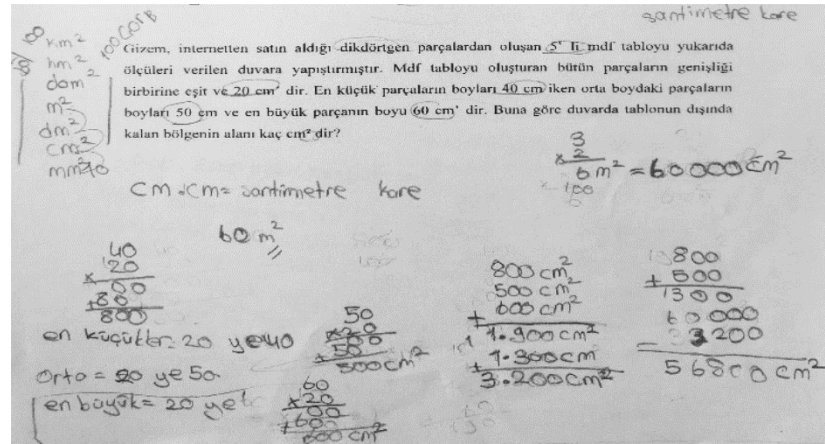 santimetre kare
100 km²
hm²
dam²
m²
dm²
cm²
mm²
Gizem, internetten satın aldığı dikdörtgen parçalardan oluşan 5' li mdf tabloyu yukarıda
ölçüleri verilen duvara yapıştırmıştır. Mdf tabloyu oluşturan bütün parçaların genişliği
birbirine eşit ve 20 cm' dir. En küçük parçaların boyları 40 cm iken orta boydaki parçaların
boyları 50 cm ve en büyük parçanın boyu 60 cm' dir. Buna göre duvarda tablonun dışında
kalan bölgenin alanı kaç cm² dir?
3
x 2
6 m² = 60000 cm²
x 100
cm x cm = santimetre kare
60 m²
40
x 20
00
+ 80
800
en küçükler = 20 ye 40
Orta = 20 ye 50
en büyük = 20 ye
50
x 20
00
+ 50
500 cm²
60
x 20
00
+ 60
600 cm²
800 cm²
500 cm²
+ 600 cm²
1.900 cm²
+ 1.300 cm
3.200 cm²
800
+ 500
1300
60000
- 3200
56800 cm²